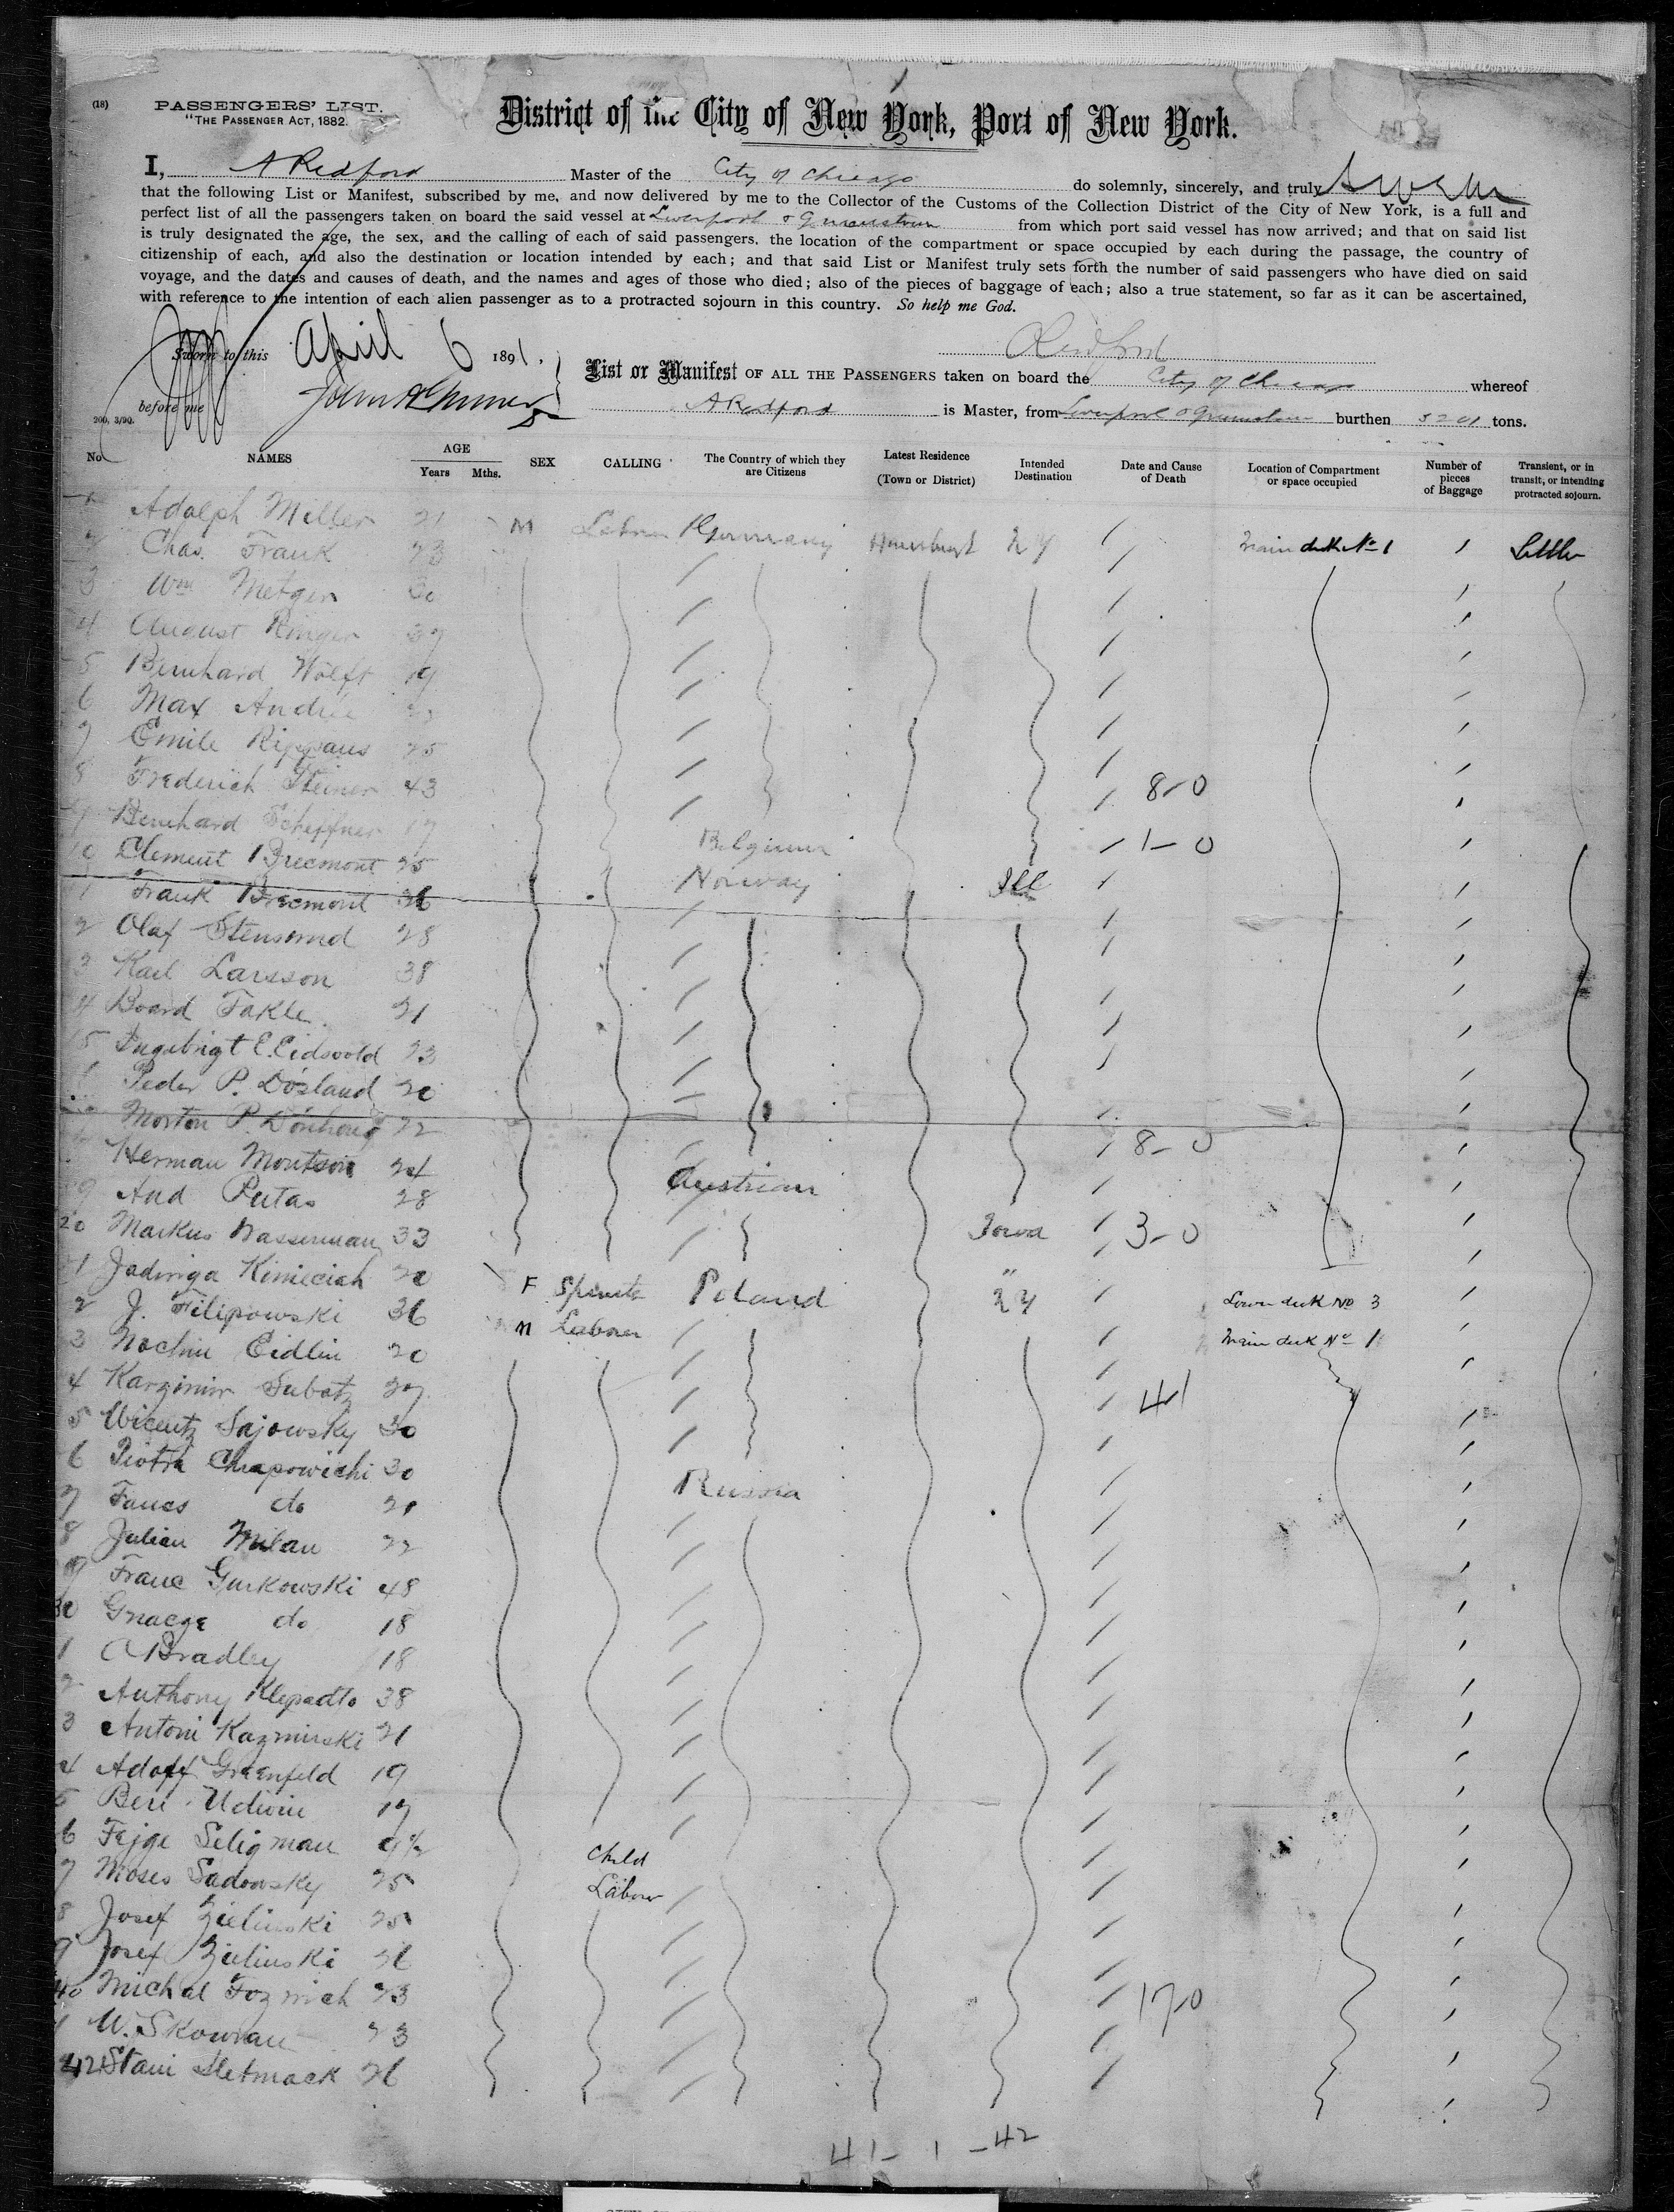 (18)
PASSENGERS' LIST.
"THE PASSENGER ACT, 1882.
District of the City of New York, Port of New York.
I, A Redford Master of the City of Chicago do solemnly, sincerely, and truly Swear
that the following List or Manifest, subscribed by me, and now delivered by me to the Collector of the Customs of the Collection District of the City of New York, is a full and
perfect list of all the passengers taken on board the said vessel at Liverpool & Queenstown from which port said vessel has now arrived; and that on said list
is truly designated the age, the sex, and the calling of each of said passengers, the location of the compartment or space occupied by each during the passage, the country of
citizenship of each, and also the destination or location intended by each; and that said List or Manifest truly sets forth the number of said passengers who have died on said
voyage, and the dates and causes of death, and the names and ages of those who died; also of the pieces of baggage of each; also a true statement, so far as it can be ascertained,
with reference to the intention of each alien passenger as to a protracted sojourn in this country. So help me God.
Sworn to this April 6 1891.
Redford
before me
200, 3/90.
List or Manifest OF ALL THE PASSENGERS taken on board the City of Chicago whereof
A Redford is Master, from Liverpool & Queenstown burthen 5201 tons.
No NAMES AGE Years Mths. SEX CALLING The Country of which they are Citizens Latest Residence (Town or District) Intended Destination Date and Cause of Death Location of Compartment or space occupied Number of pieces of Baggage Transient, or in transit, or intending protracted sojourn.
1 Adolph Miller 21 M Labour Germany NY Main deck No 1 1 Settler
2 Chas. Frank 23
3 Wm Metger 30
4 August Ringer 37
5 Bernhard Wolft 19
6 Max Andrée
7 Emile Rippaus 25
8 Frederich Steiner 43 8-0
9 Bernhard Scheffner 17
10 Clement Brecmont 25 Belgium 1-0
1 Frank Brecmont 36 Norway Ill
2 Olaf Stensrund 28
3 Karl Larsson 38
4 Board Takle 21
5 Ingebrigt E. Eidsvold 23
Peder P. Dosland 20
Morton P. 22
Herman Montson 24 8-0
9 And Putas 28 Austrian
20 Markus Wasserman 33 Iowa 3-0
1 Jadwiga Kimiciah 20 F Spinster Poland " NY Lower deck No 3
2 J. Filipowski 36 M Labour Main deck No 1
3 Nochim Eidlin 20
4 Karzimir Subatz 27 4-1
5 Wicentz Sajowsky 30
6 Piotra Chrapowichi 30
7 do 21 Russia
8 Julian Milan 22
9 Franc Gurkowski 48
30 do 18
1 A Bradley 18
2 Anthony Klepadto 38
3 Antoni Kazmirski 21
4 Adoff Greenfeld 19
5 Beri Udwin 17
6 Fejge Seligman 9½ Child
7 Moses Sadowsky 25 Labour
8 Josef Zielinski 25
9 Josef Zielinski 26
40 Michal 23 17-0
1 W. Skowran 23
42 Stani Hetmack 26
41 - 1 - 42